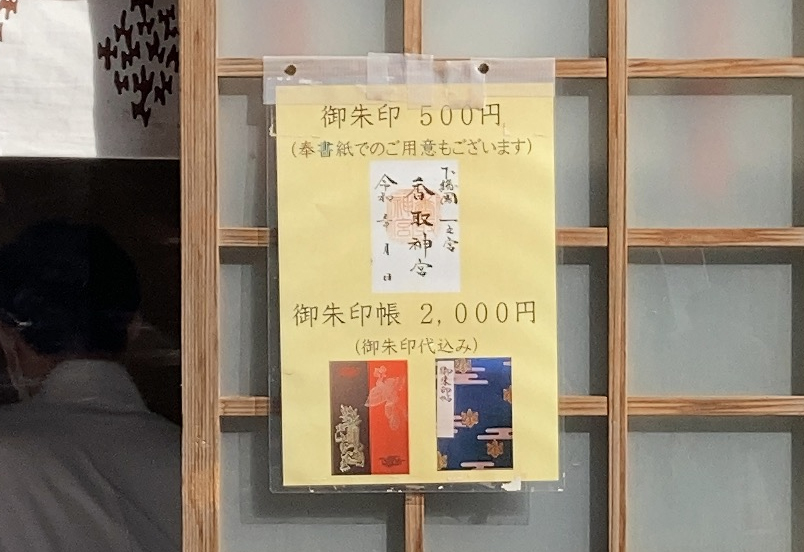 御朱印 500円
(奉書紙でのご用意もございます)
下総国 一之宮
香取神宮
令和 年 月 日
御朱印帳 2,000円
(御朱印代込み)
御朱印帖